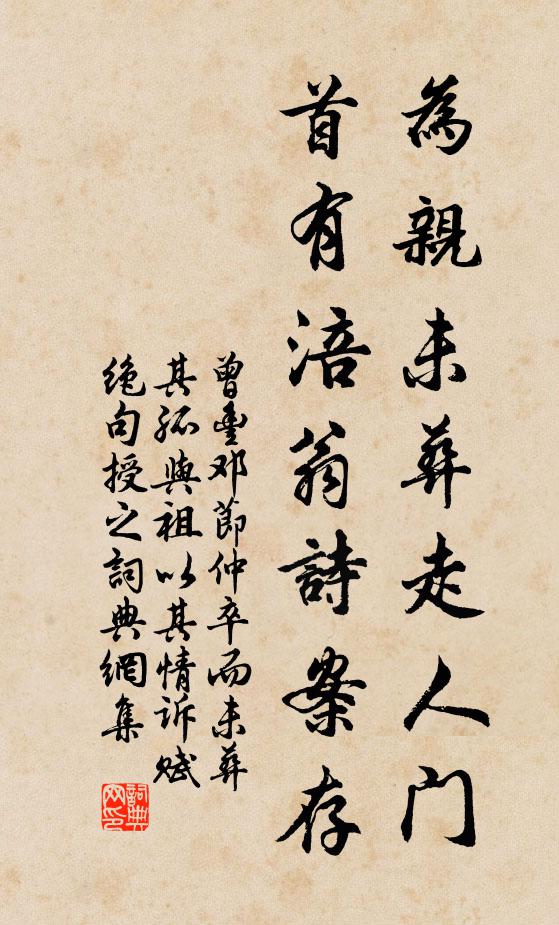 為親未葬走人門
首有涪翁詩案存
曾豐邓節仲卒而未葬
其孤與祖以其情訴賦
绝句授之詞典網集
詞典
网印